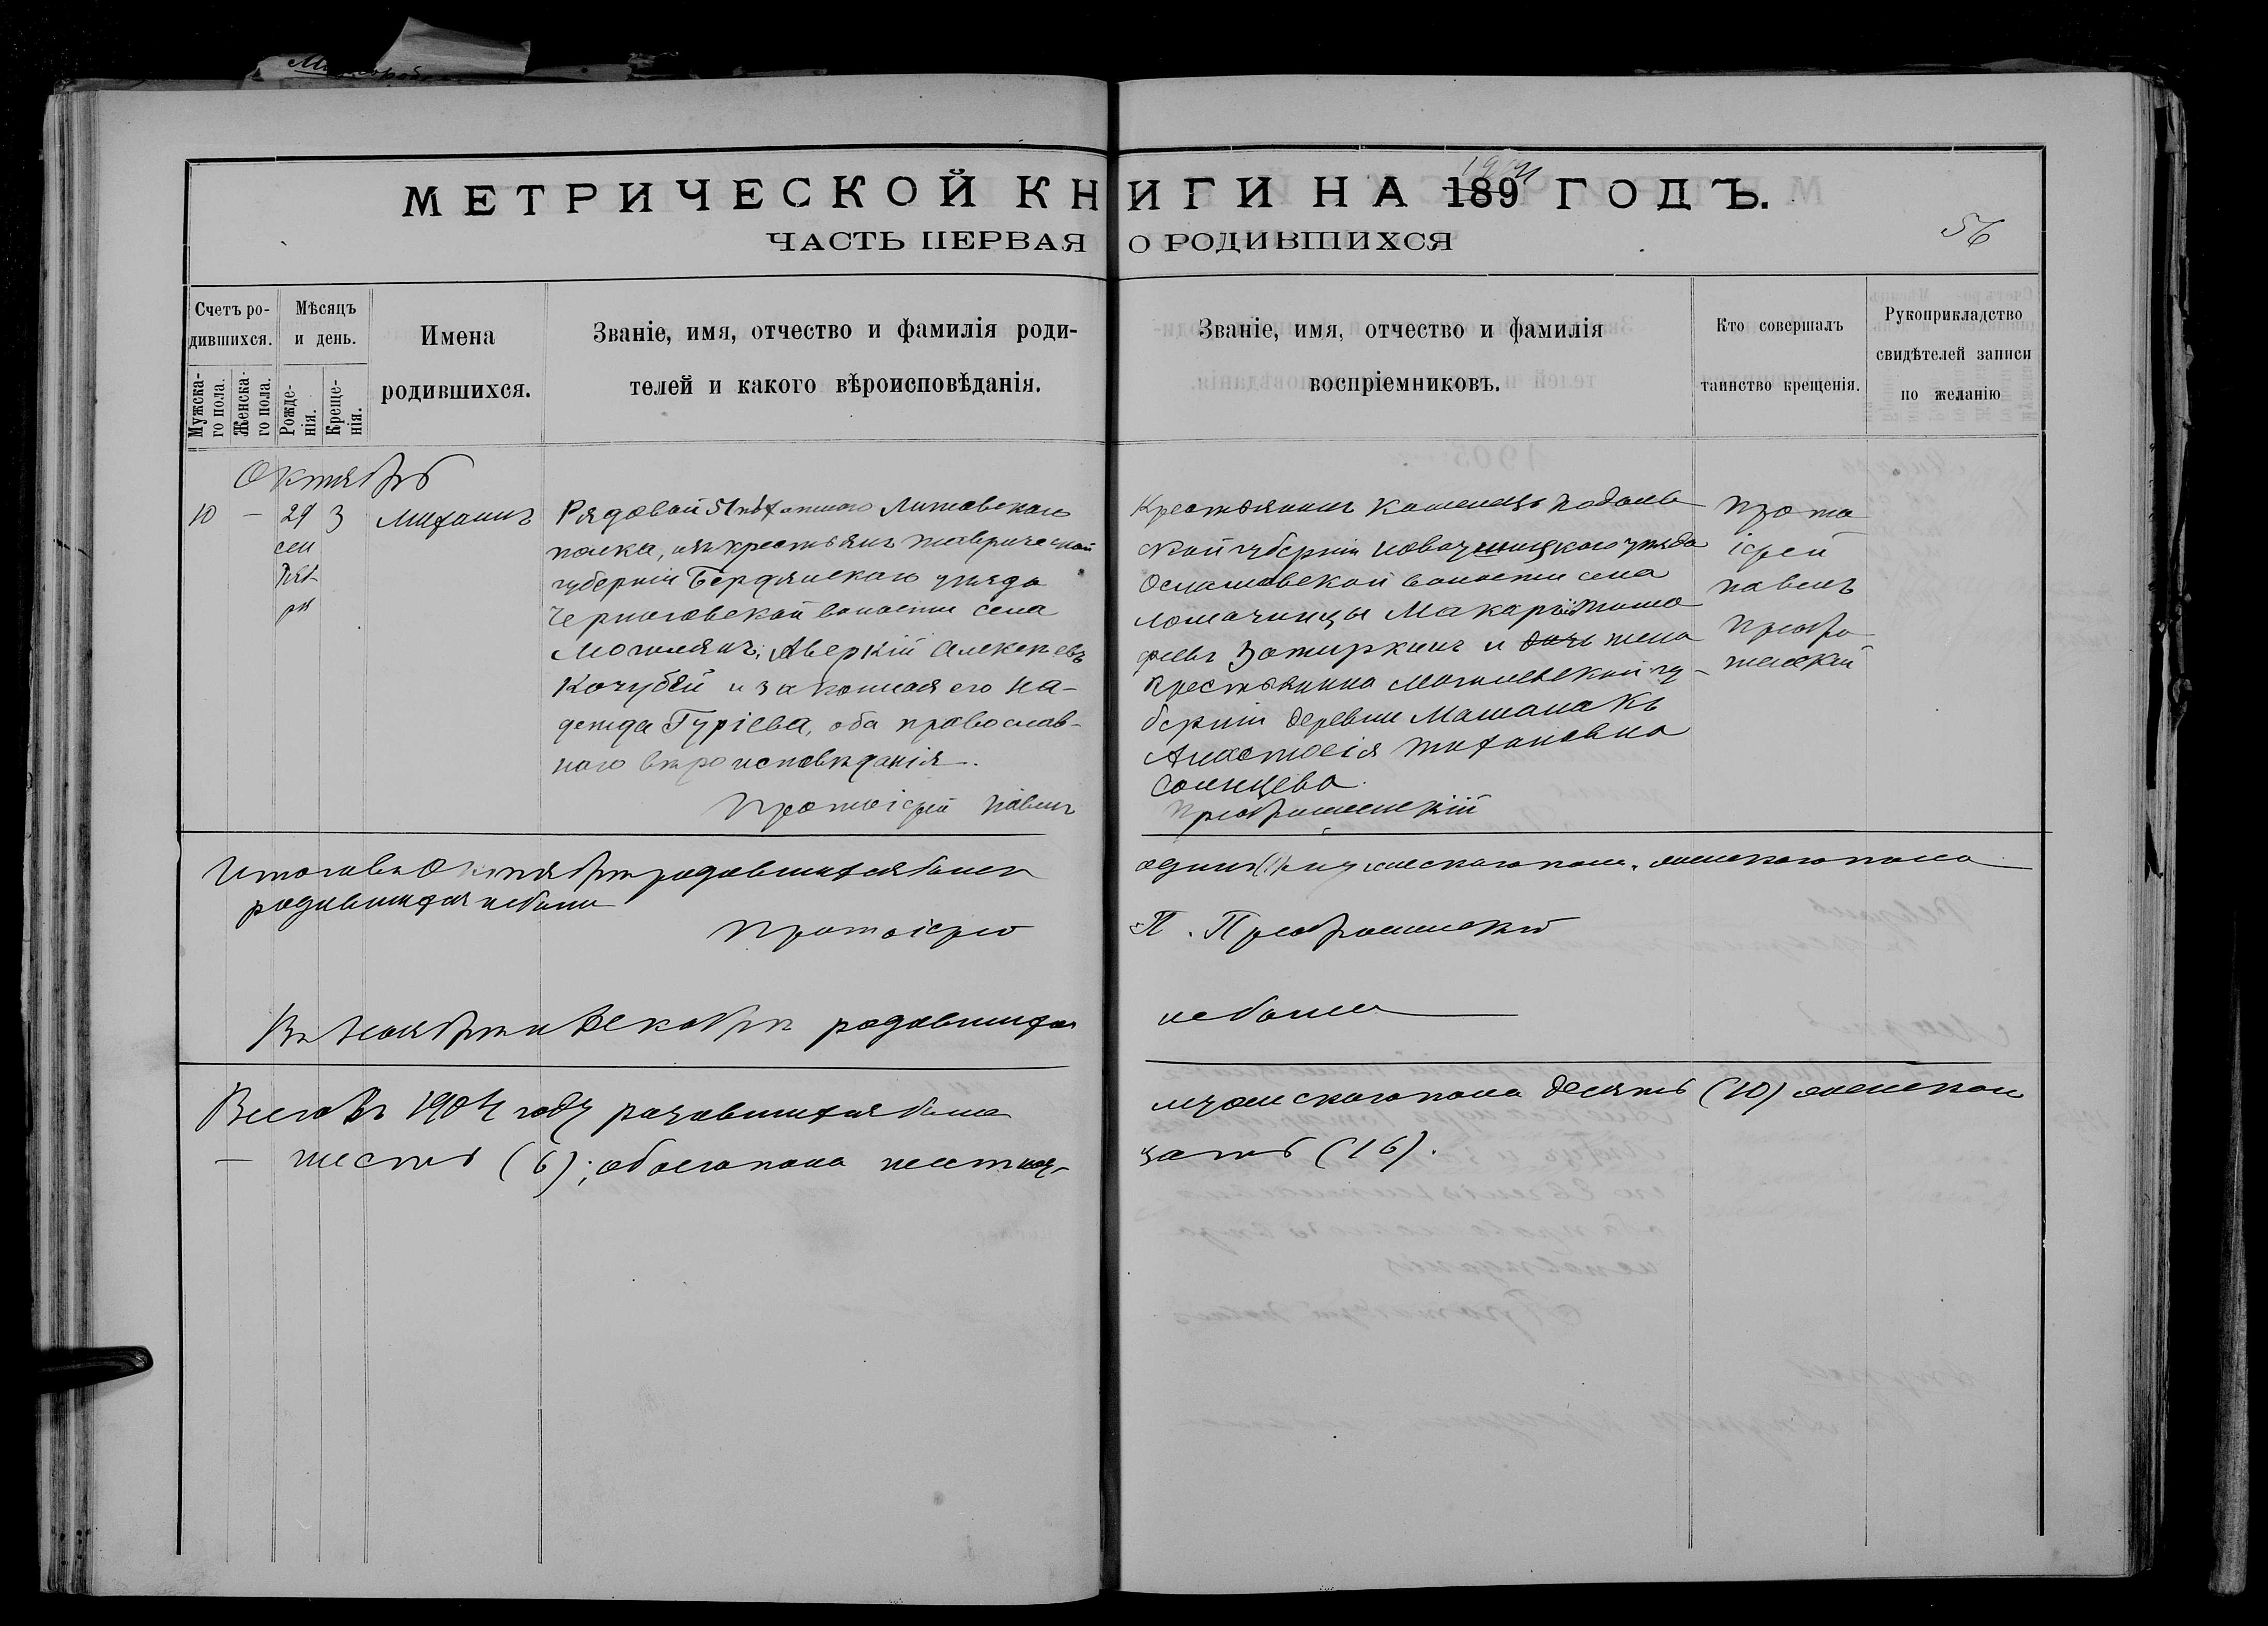 МЕТРИЧЕСКОЙ КНИГИ НА 189 ГОДЪ.
1904
ЧАСТЬ ПЕРВАЯ О РОДИВШИХСЯ
56
Счетъ ро-
дившихся.
Мужска-
го пола.
Женска-
го пола.
Мѣсяцъ
и день.
Рожде-
нія.
Креще-
нія.
Имена
родившихся.
Званіе, имя, отчество и фамилія роди-
телей и какого вѣроисповѣданія.
Званіе, имя, отчество и фамилія
воспріемниковъ.
Кто совершалъ
таинство крещенія.
Рукоприкладство
свидѣтелей записи
по желанію
Октябрь
10 — 29 3 Михаилъ
сен
тяб
ря
Рядовой 51 пѣхотнаго Литовскаго
полка, изъ крестьянъ Таврической
губерніи Бердянскаго уѣзда
Черниговской волости села
Могилянъ, Аверкій Алексѣевъ
Кочубей и законная его На-
дежда Гуріева, оба православ-
наго вѣроисповѣданія.
Протоіерей Павелъ
Крестьянинъ Каменецъ Подоль
ской губерніи Новоушицкаго уѣзда
волости села
Ломачинцы Макарій Тимо
феевъ и дочь жена
крестьянина Могилевской гу-
берніи деревни
Анастасія Тихановна
Солнцева
Преображенскій
Прото
іерей
Павелъ
Преобра
женскій
Итого въ Октябрѣ родившихся былъ
одинъ (1) мужескаго пола, женскаго пола
родившихся не было
Протоіерей
П. Преображенскій
Въ Ноябрѣ и Декабрѣ родившихся
не было
Всего въ 1904 году родившихся было
мужескаго пола десять (10) женскаго
— шесть (6); обоего пола шестнад-
цать (16).